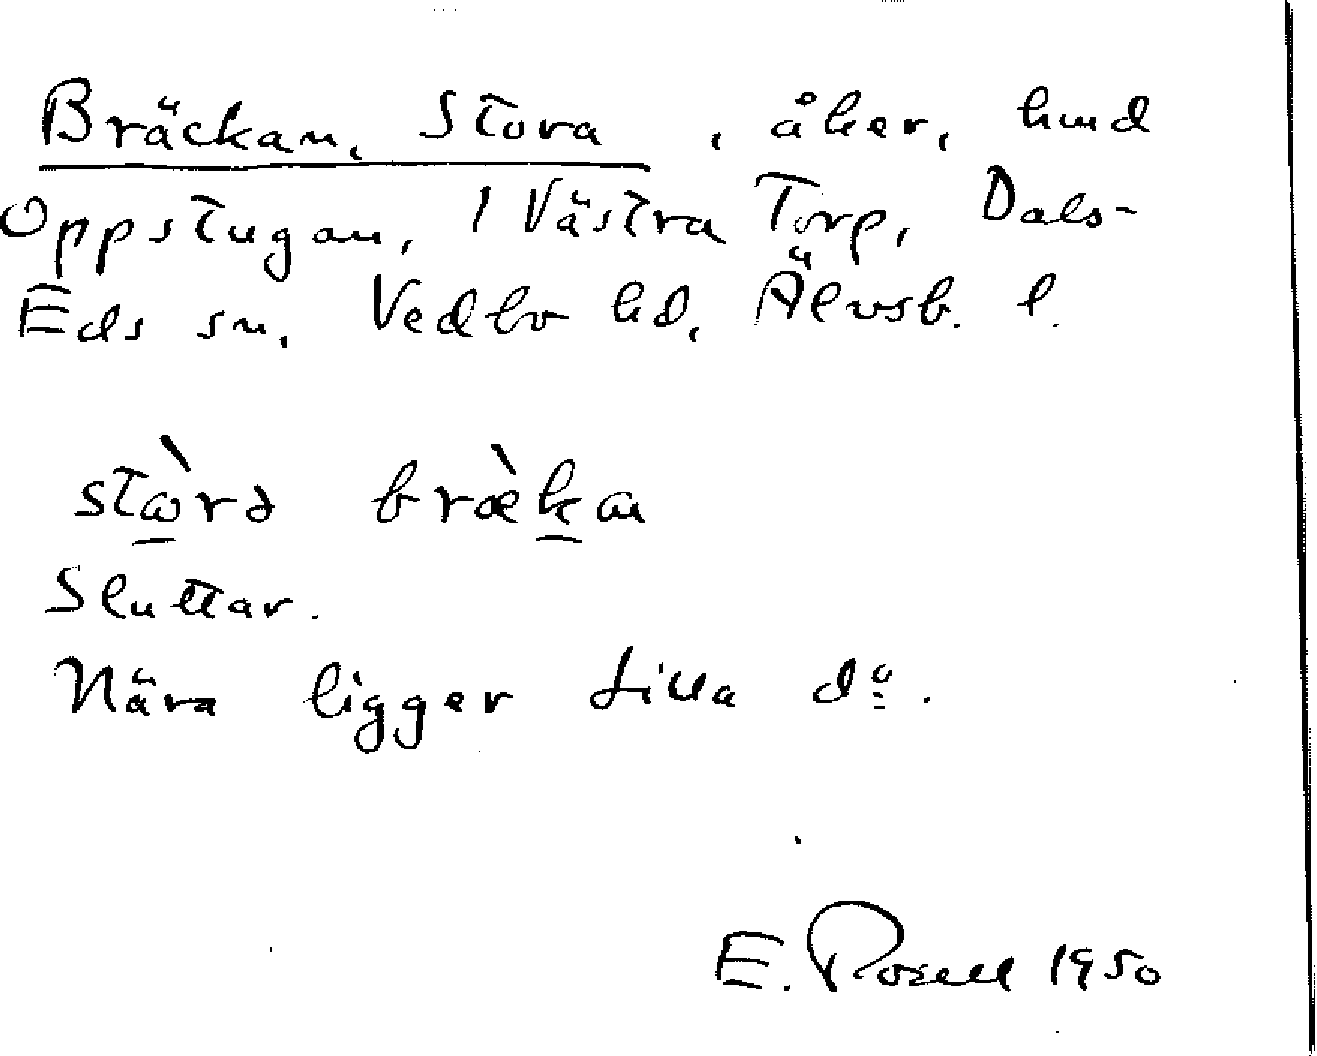 Bräckan, Stora, åker, hmd
Oppstugan, 1 Västra Torp, Dals-
Eds sn, Vedbo hd, Älvsb. l.
stὼrə bræ̀kan
Sluttar.
Nära ligger Lilla do.
E. Rosell 1950